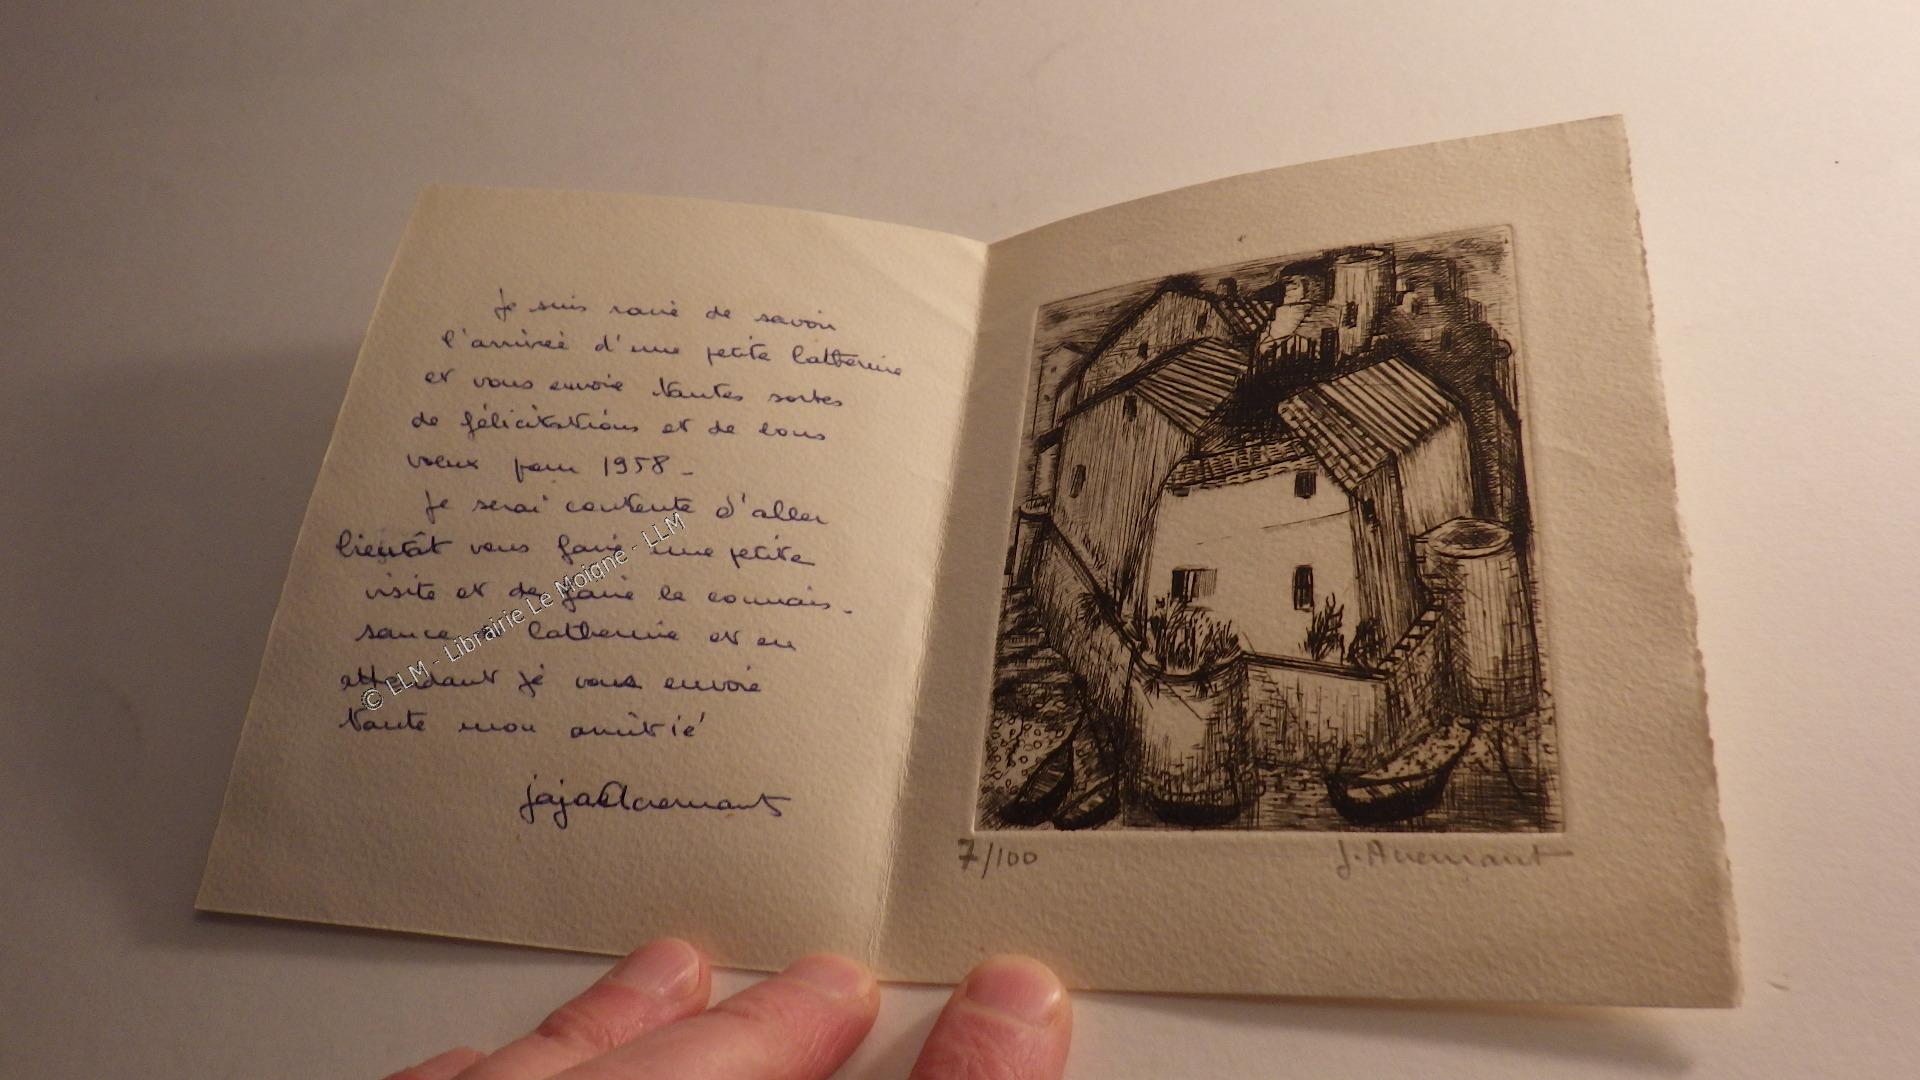 Je suis ravie de savoir
l'arrivée d'une petite Catherine
et vous envoie toutes sortes
de félicitations et de bons
voeux pour 1958 -
Je serai contente d'aller
bientôt vous faire une petite
visite et de faire la connais-
sance Catherine et en
attendant je vous envoie
toute mon amitié
jaja Acremant
© LLM - Librairie Le Moigne - LLM
7/100
J. Acremant